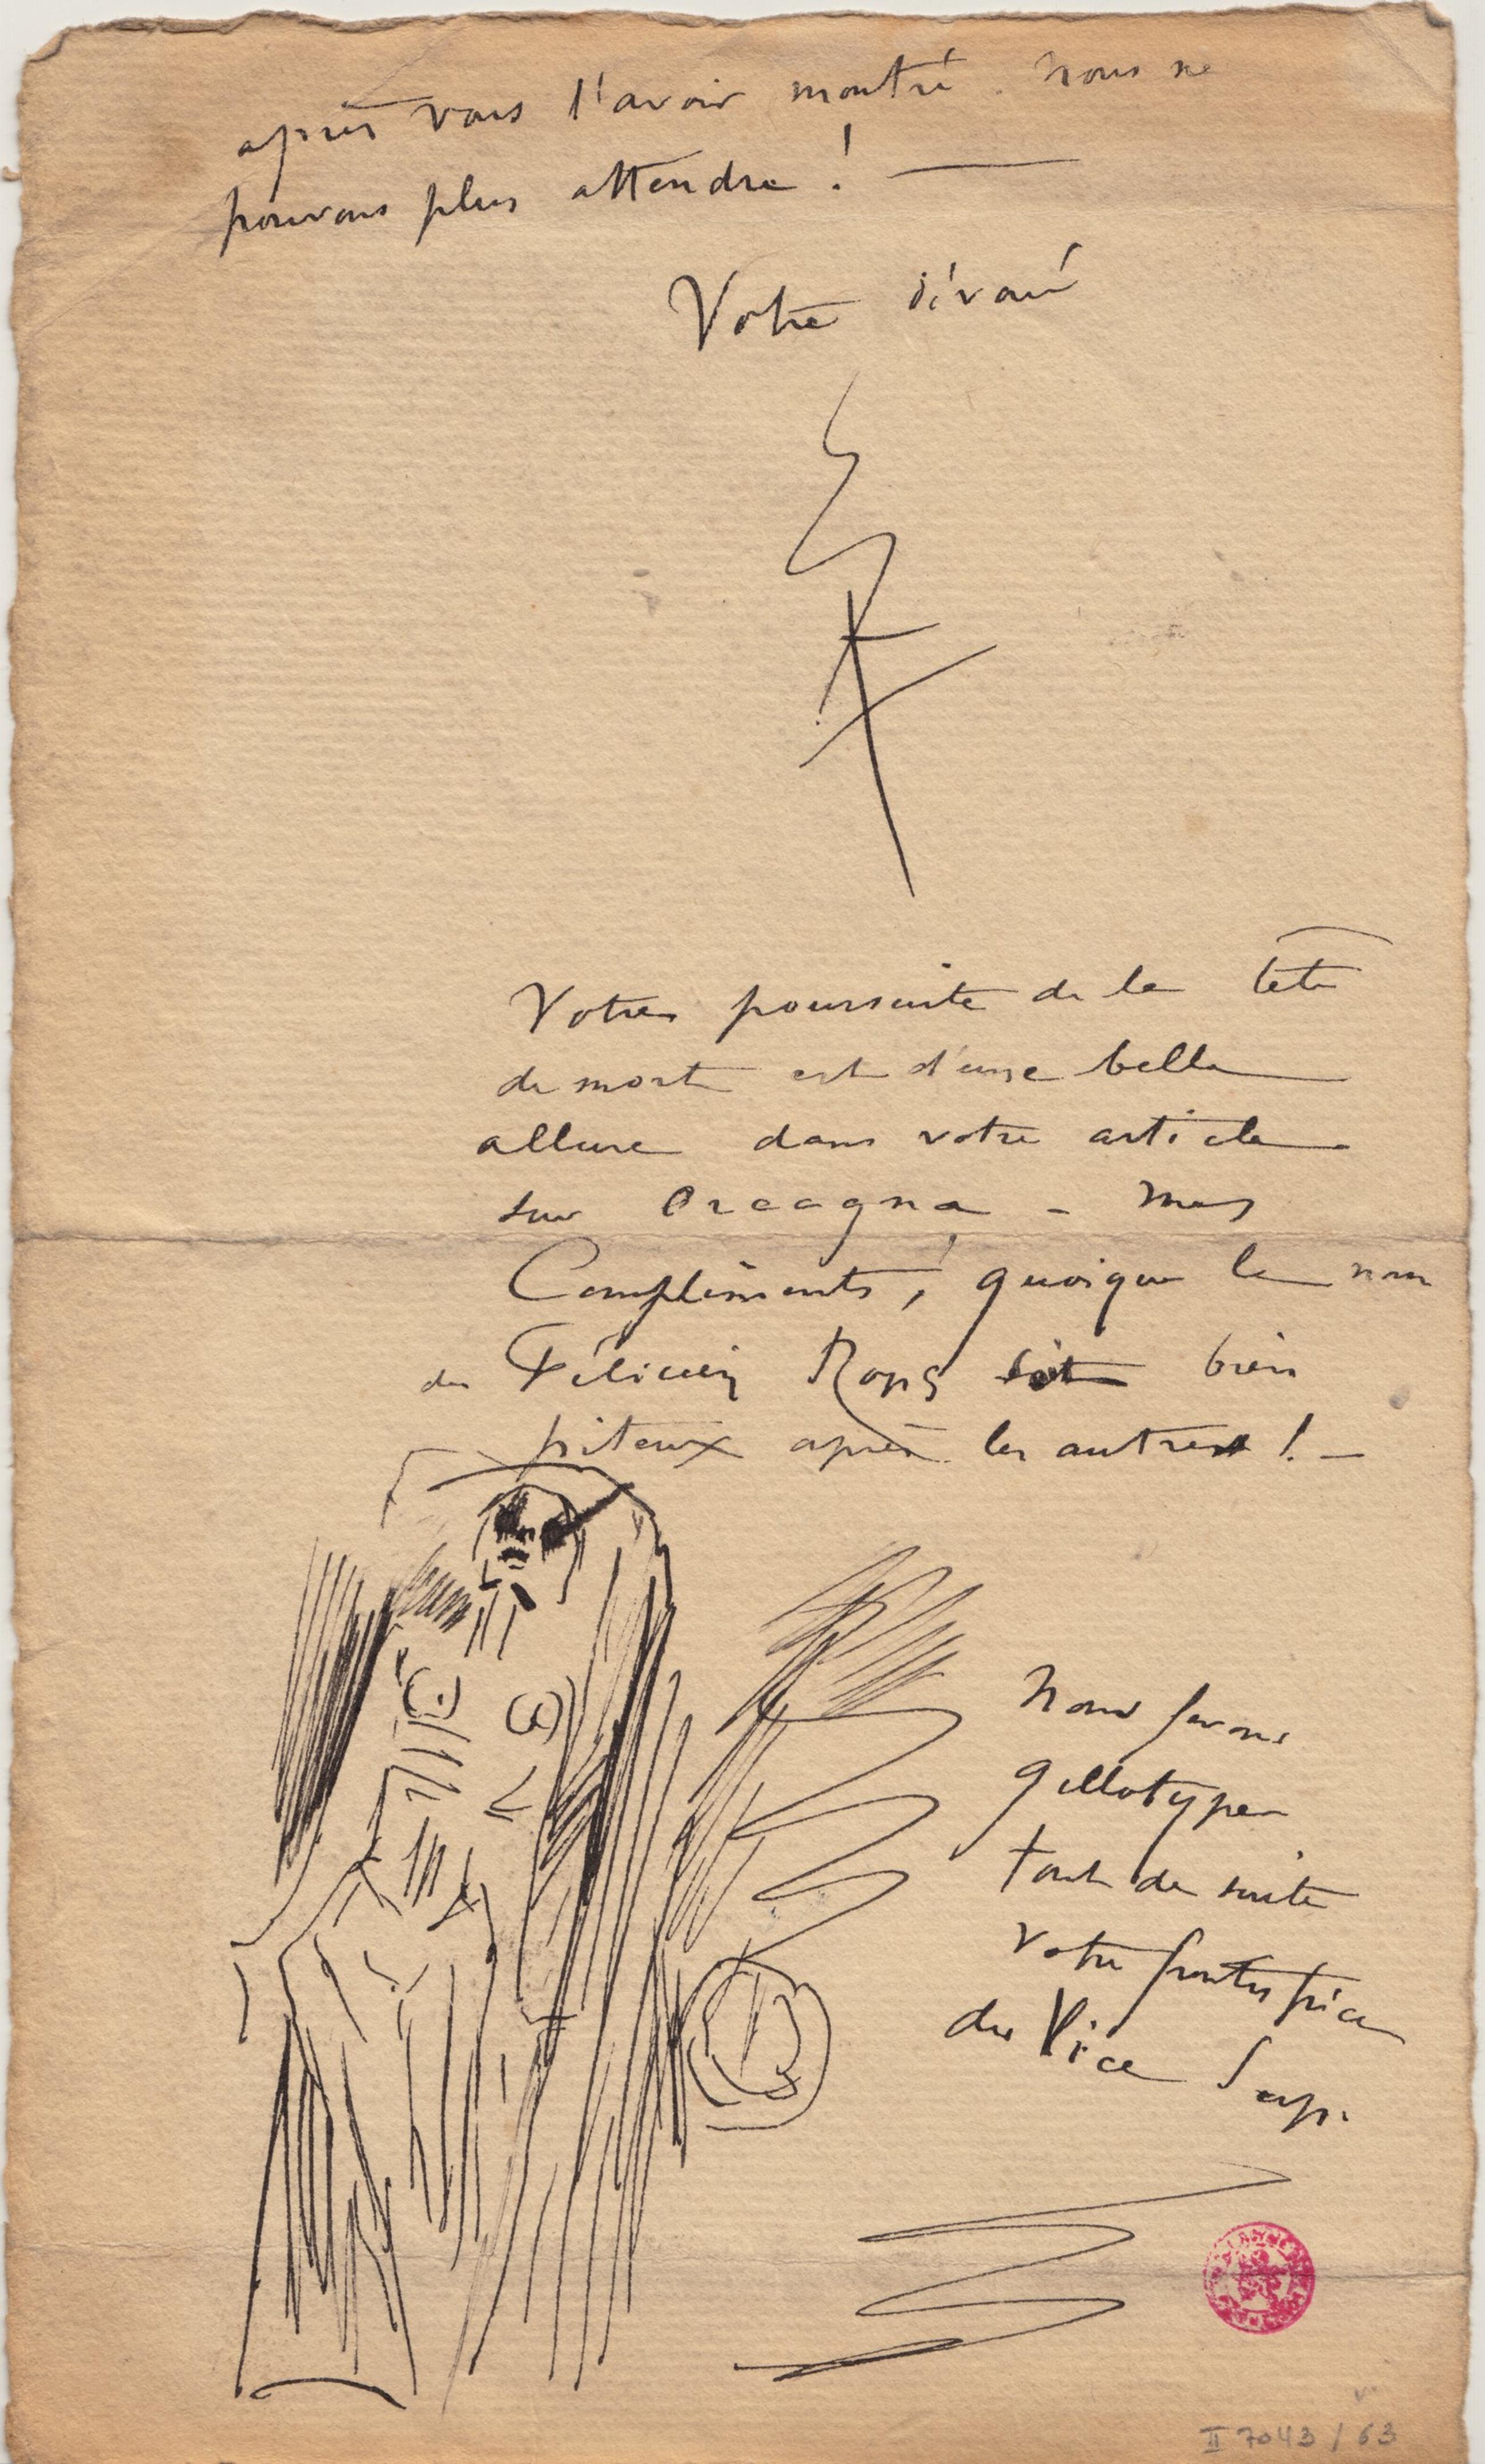 après vous l'avoir montré. Nous ne
pouvons plus attendre ! —
Votre dévoué
Votre poursuite de la tête
de mort est d'une belle
allure dans votre article
sur Orcagna - Mes
Compliments, quoique le nom
de Félicien Rops soit bien
piteux après les autres ! -
Nous ferons
gillotyper
tout de suite
votre frontispice
du Vice Sup.
II 7043 / 63